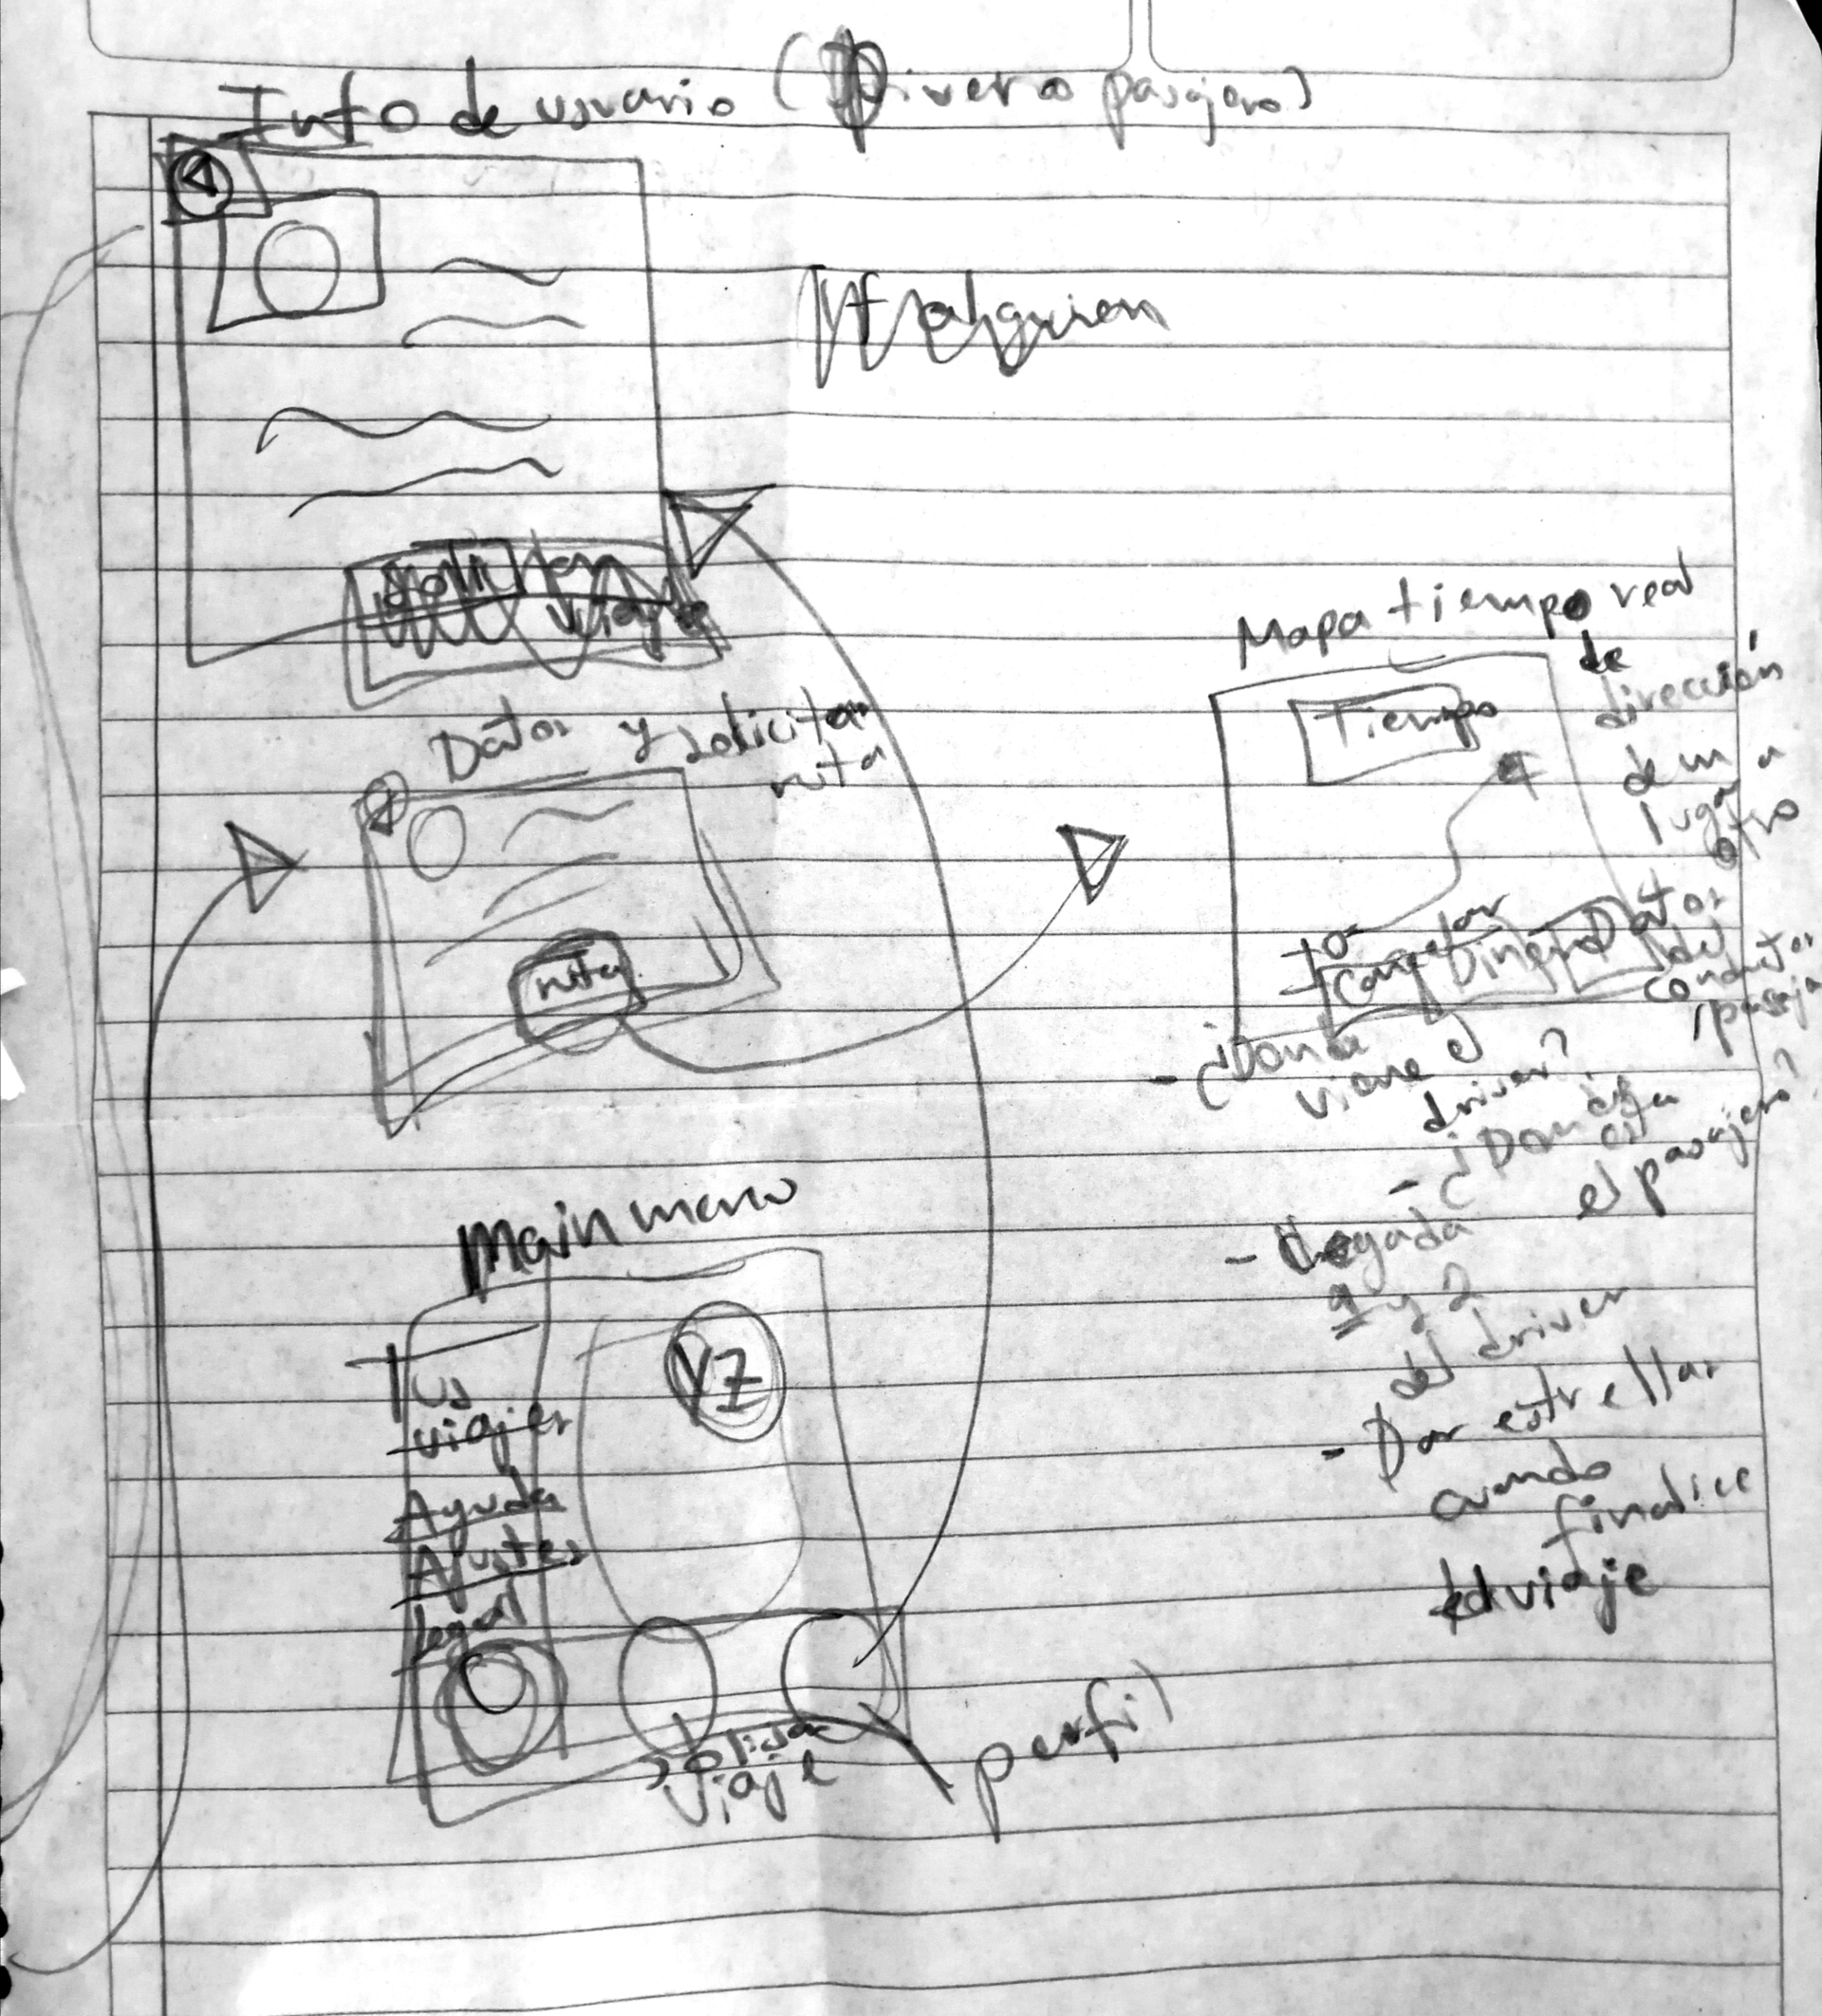 Info de usuario (Driver o pasajero)
If alguien
Solicitar
viaje
Datos y solicitar
ruta
ruta
Mapa tiempo real
de
dirección
de un
lugar a
otro
Tiempo
Cancelar
Dinero
Datos
del
conductor
/pasaje
- ¿Donde
viene el
driver?
- ¿Donde
está
el pasajero?
- llegada
1 y 2
del driver
- Dar estrellas
cuando
finalice
el viaje
Main menu
YZ
Tus
viajes
Ayuda
Ajustes
legal
viaje
perfil